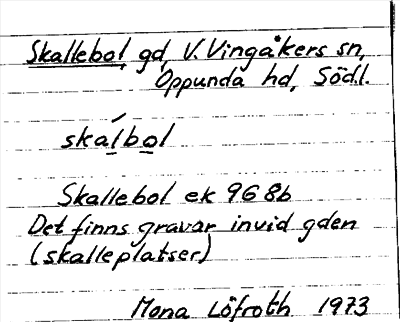 Skallebol gd, V. Vingåkers sn,
Oppunda hd, Södl.
ska´lbol
Skallebol ek 968b
Det finns gravar invid gden
(skalleplatser)
Mona Löfroth 1973